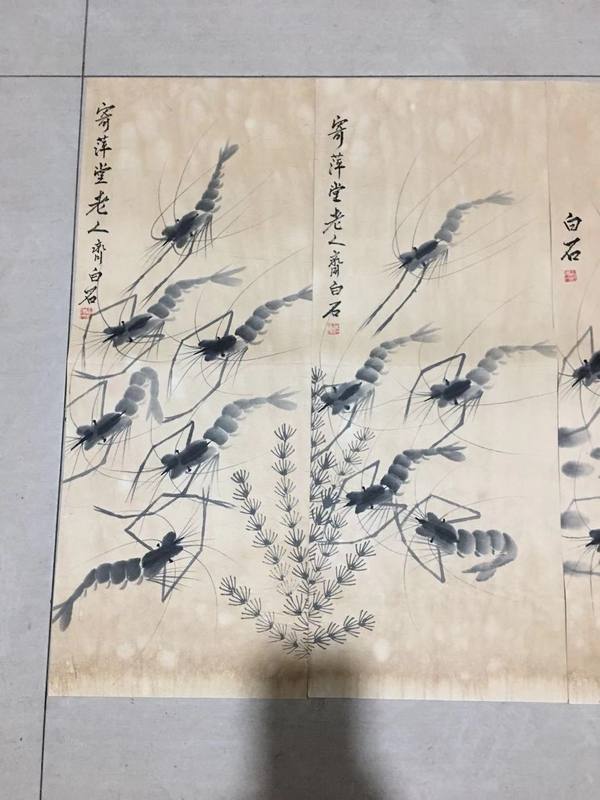 寄萍堂老人齊白石
寄萍堂老人齊白石
白石